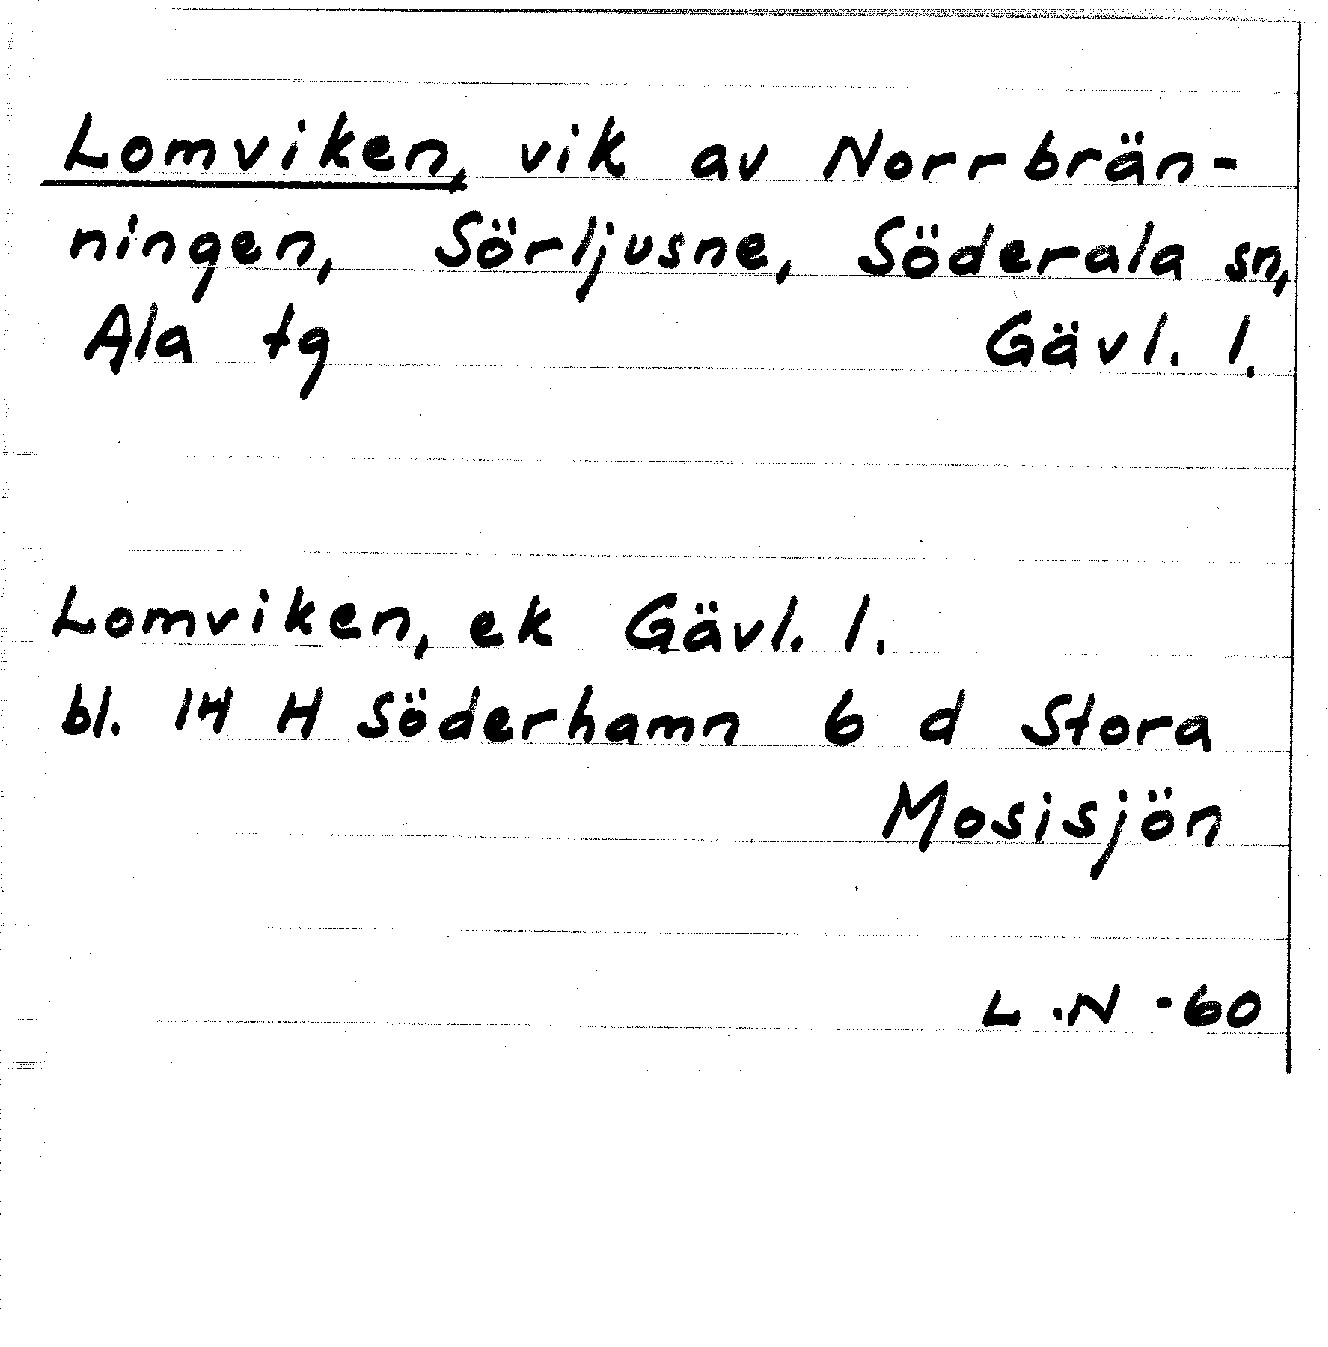 Lomviken, vik av Norrbrän-
ningen, Sörljusne, Söderala sn,
Ala tg Gävl. l.
Lomviken, ek Gävl. l.
bl. 14 H Söderhamn 6 d Stora
Mosisjön
L.N -60